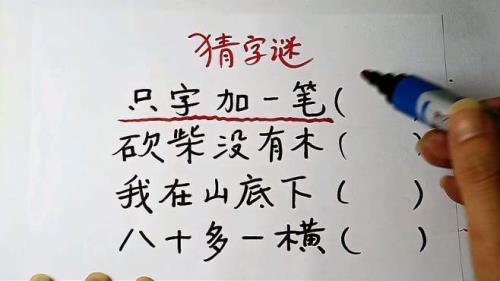 猜字谜
只字加一笔(
砍柴没有木( )
我在山底下( )
八十多一横( )